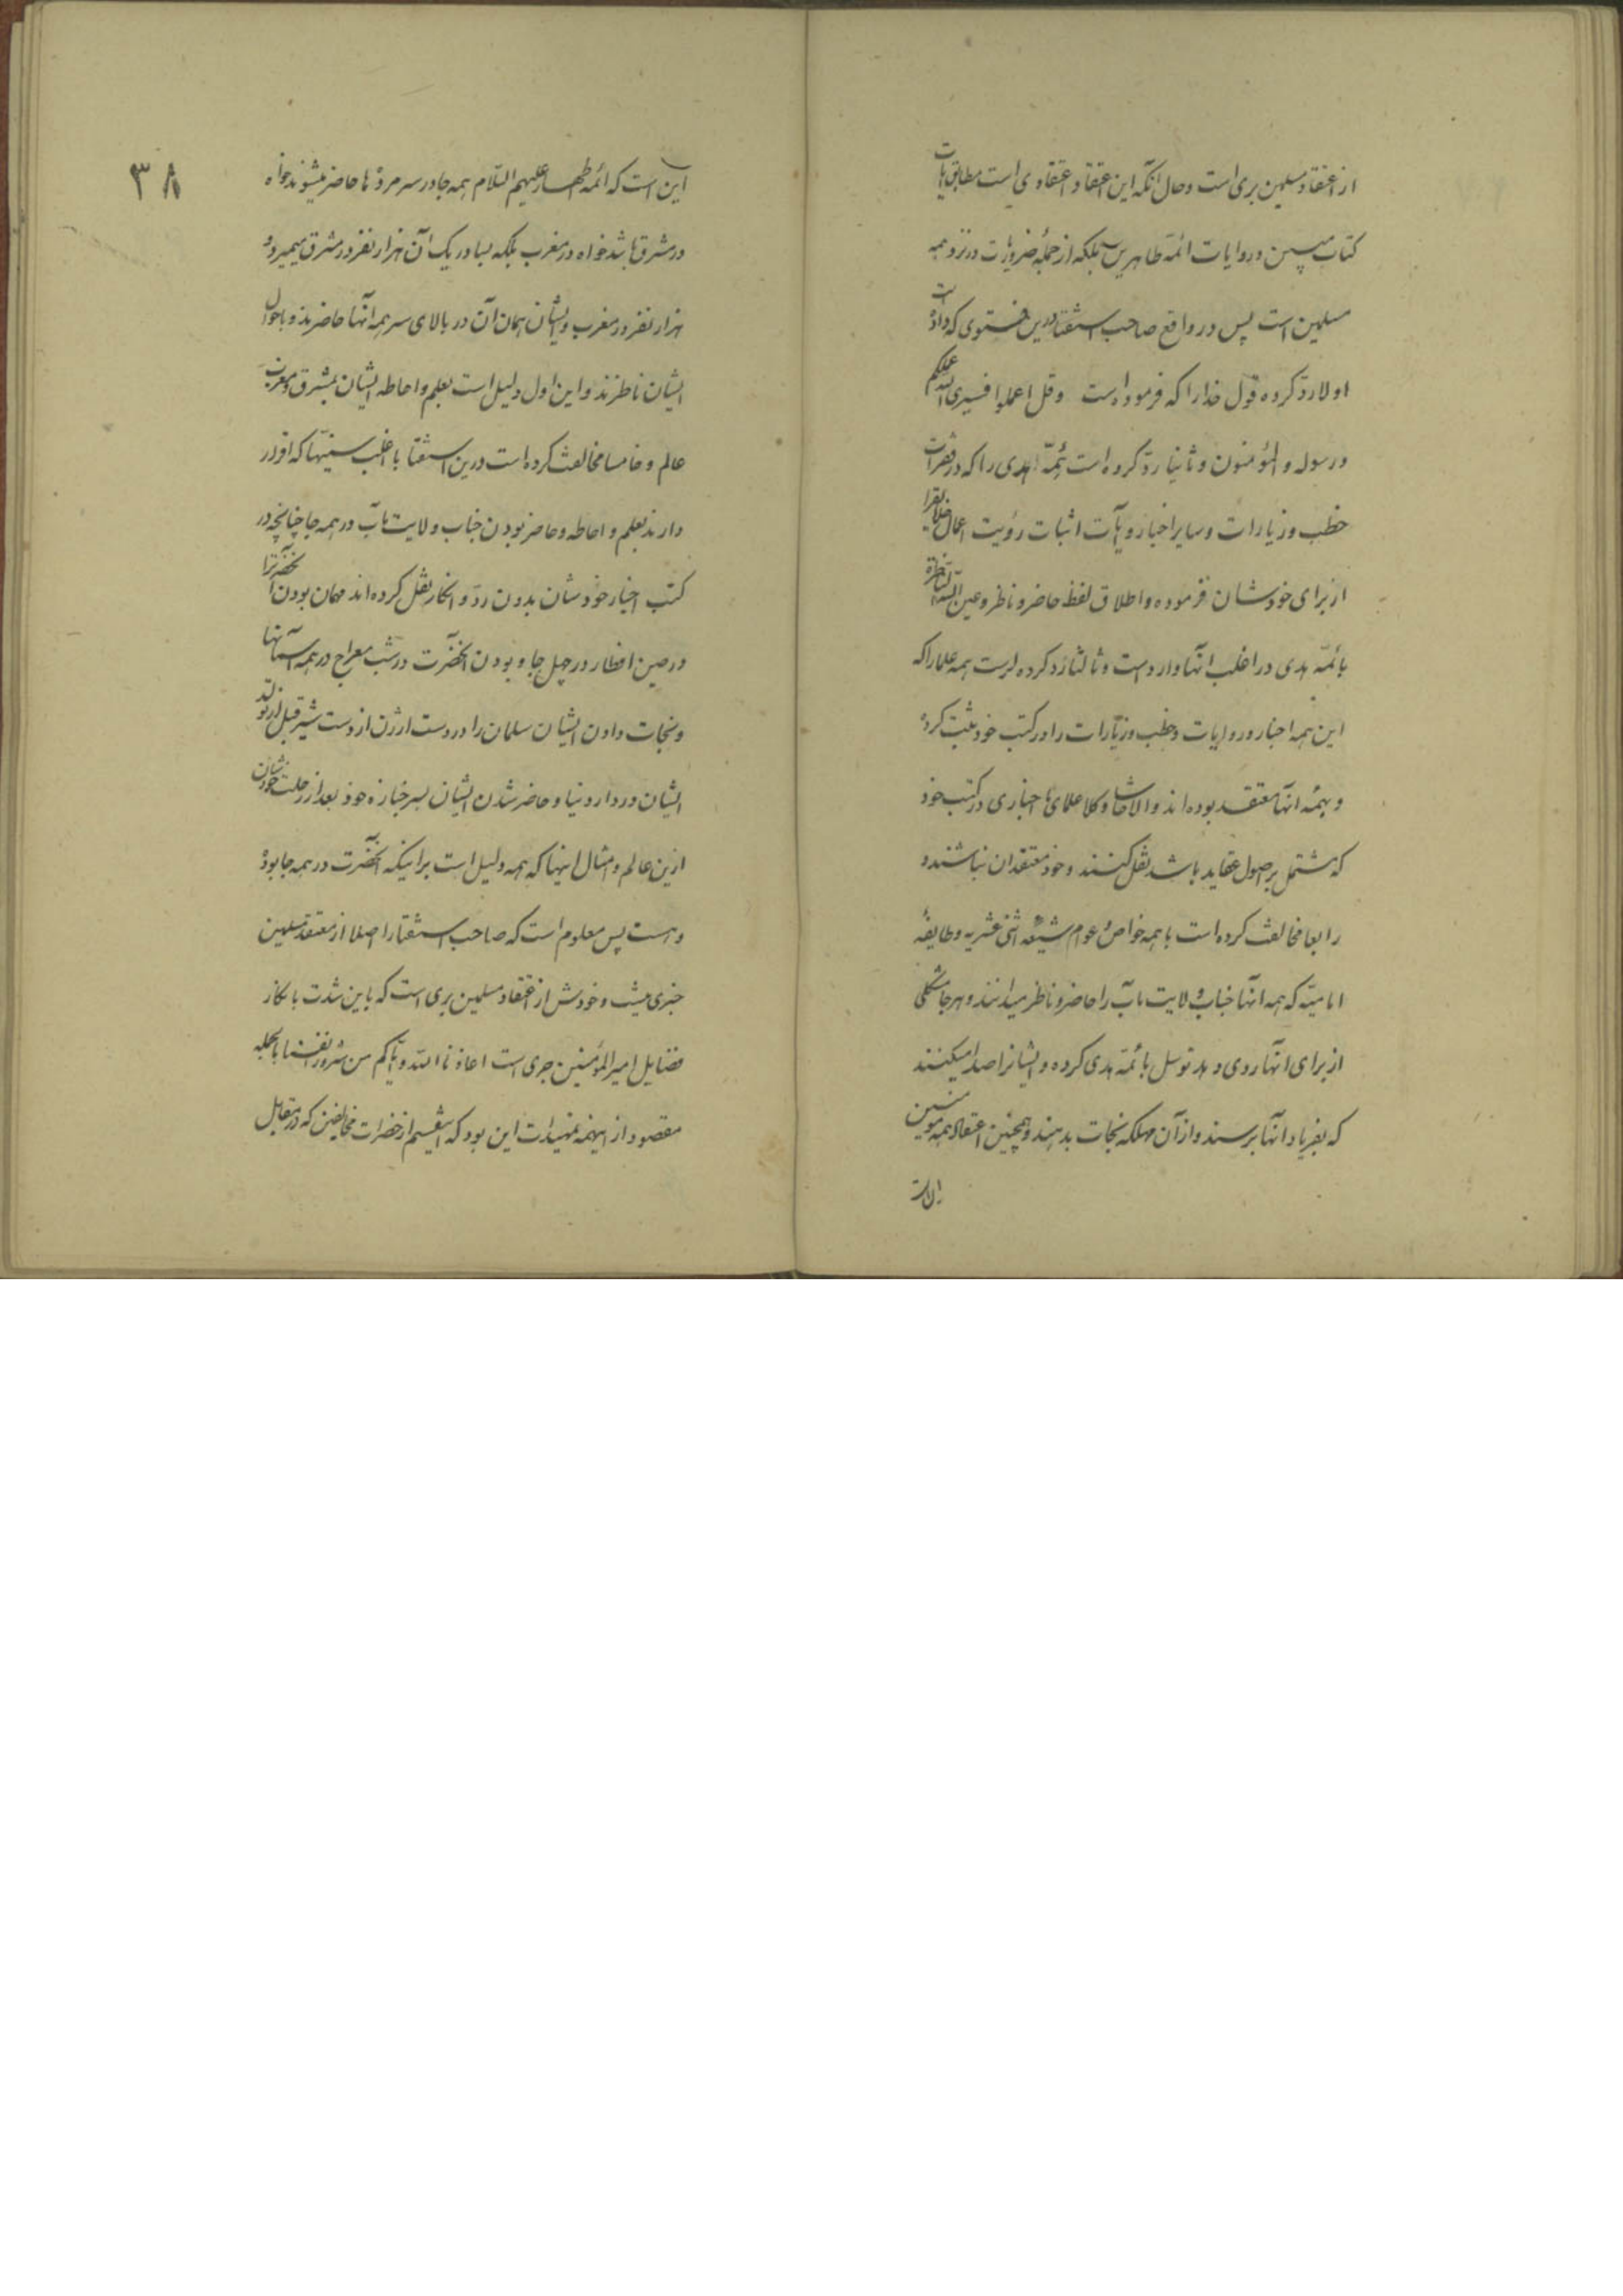 از اعتقاد مسلمین بری است و حال آنکه این اعتقاد اعتقادی است مطابق بآیات
کتاب مبین و روایات ائمه طاهرین بلکه از جمله ضروریات در نزد همه
مسلمین است پس در واقع صاحب استفتا درین فتوی که داده است
اولا رد کرده قول خدا را که فرموده است وقل اعملوا فسیری الله عملکم
ورسوله والمؤمنون و ثانیا رد کرده است ائمّه هدی را که در فقرات
خطب و زیارات و سایر اخبار و آیات اثبات رؤیت اعمال خلایق را
از برای خودشان فرموده و اطلاق لفظ حاضر و ناظر و عین الله الناظرة
بائمّه هدی در اغلب آنها وارد است و ثالثا رد کرده است همه علما را که
این همه اخبار و روایات و خطب و زیارات را در کتب خود ثبت کرده
و بهمه آنها معتقد بوده اند والا حاشا و کلا علمای اخباری در کتب خود
که مشتمل بر اصول عقاید باشد نقل کنند و خود معتقد آن نباشند و
رابعا مخالفت کرده است با همه خواص و عوام شیعه اثنی عشریه و طایفهٔ
امامیّه که همه آنها جناب ولایت مآب را حاضر و ناظر میدانند و هر جا مشکلی
از برای آنها روی دهد توسل بائمّه هدی کرده و ایشانرا صدا میکنند
که بفریاد آنها برسند و از آن مهلکه نجات بدهند و همچنین اعتقاد همه مومنین
۳۸
این است که ائمه اطهار علیهم السّلام همه جا در سر مرده ها حاضر میشوند خواه
در مشرق باشد خواه در مغرب بلکه بسا در یک آن هزار نفر در مشرق میمیرد و
هزار نفر در مغرب و ایشان همان آن در بالای سر همه آنها حاضرند و باحوال
ایشان ناظرند و این اول دلیل است بعلم و احاطه ایشان بمشرق و مغرب
عالم و خامسا مخالفت کرده است درین استفتا با اغلب سنیها که اقرار
دارند بعلم و احاطه و حاضر بودن جناب ولایت مآب در همه جا چنانچه در
کتب اخبار خودشان بدون ردّ و انکار نقل کرده اند مهمان بودن آنحضرترا
در حین افطار در چهل جا و بودن آنحضرت در شب معراج در همه آسمانها
و نجات دادن ایشان سلمان را در دشت ارژن از دست شیر قبل از تولد
ایشان در دار دنیا و حاضر شدن ایشان بسر جنازه خود بعد از رحلت خودشان
ازین عالم و امثال اینها که همه دلیل است بر اینکه آنحضرت در همه جا بوده
و هست پس معلوم است که صاحب استفتا را اصلا از معتقد مسلمین
خبری نیست و خودش از اعتقاد مسلمین بری است که باین شدت بانکار
فضایل امیرالمؤمنین جری است اعاذنا الله وایّاکم من شرور انفسنا بالجمله
مقصود از اینهمه تمهیدات این بود که از حضرات مخالفین که در مقابل